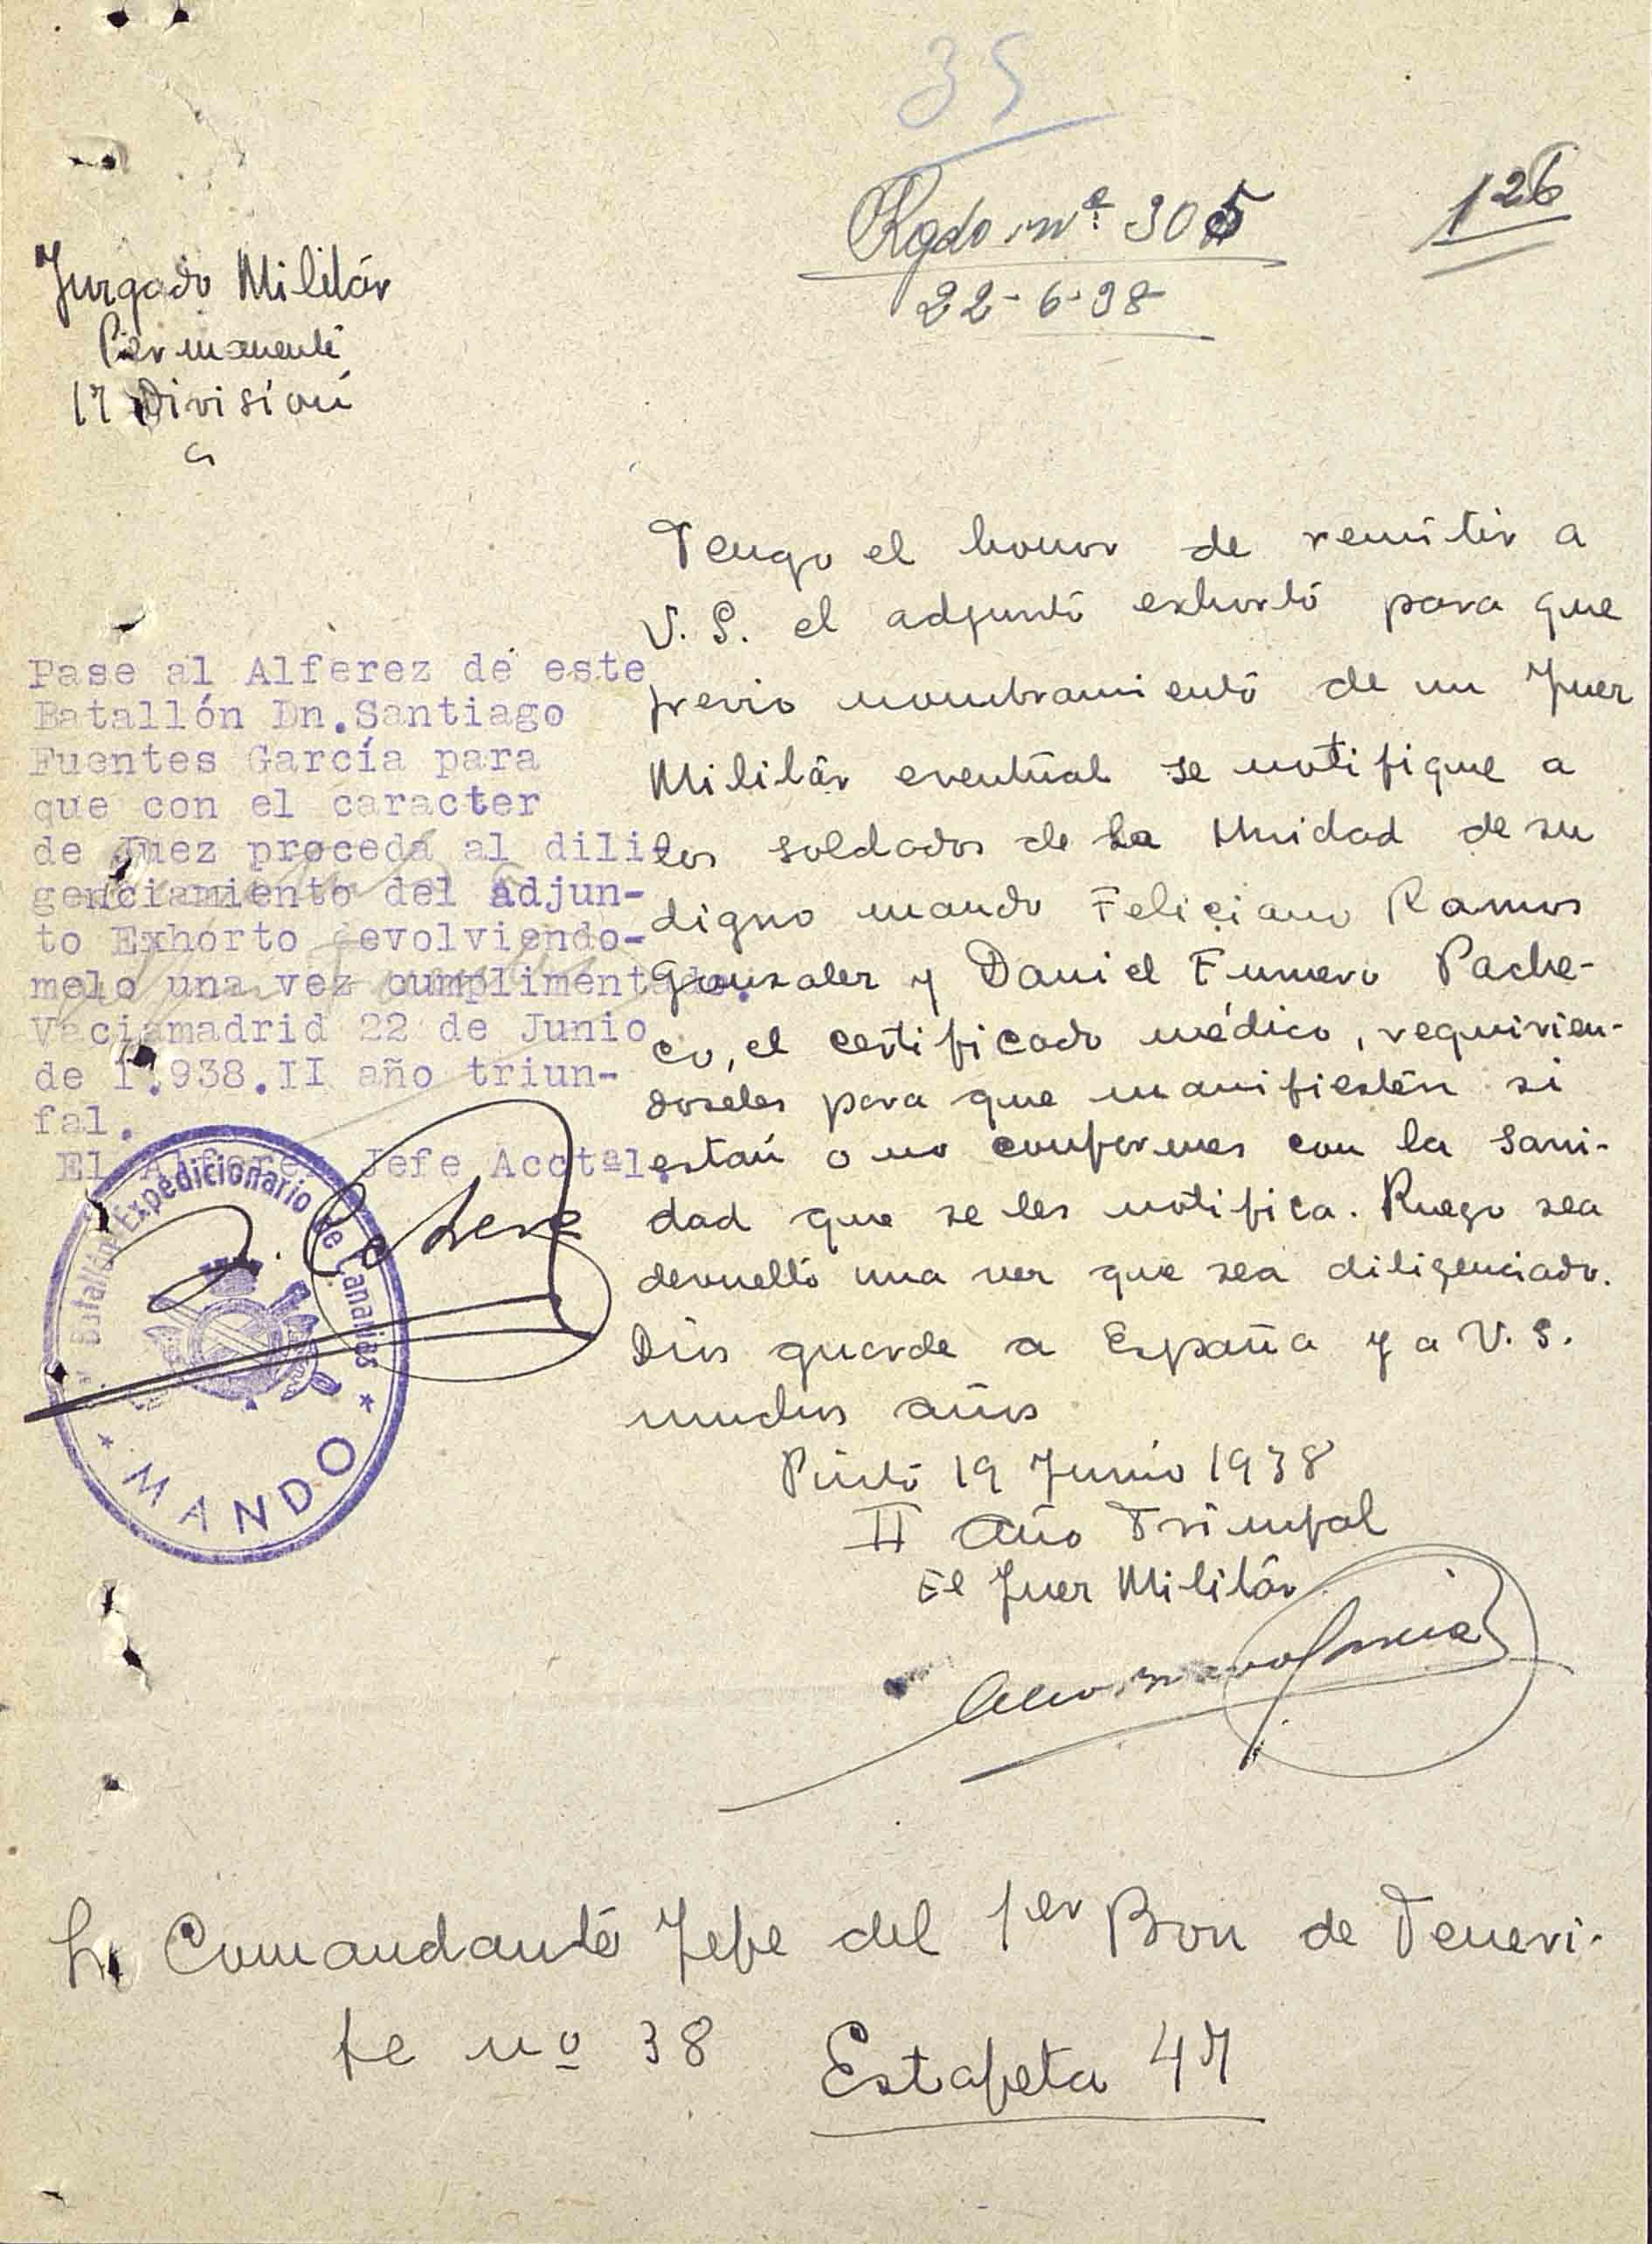 35
Rgdo nº 305
22-6-38
126
Juzgado Militár
Permanente
17 División
Tengo el honor de remitir a
V. S. el adjunto exhorto para que
previo nombramiento de un Juez
Militár eventual se notifique a
los soldados de la Unidad de su
digno mando Feliciano Ramos
Gonzalez y Daniel Fumero Pache-
co, el certificado médico, requirien-
doseles para que manifiesten si
están o no conformes con la sani-
dad que se les notifica. Ruego sea
devuelto una vez que sea diligenciado.
Dios guarde a España y a V. S.
muchos años
Pinto 19 Junio 1938
II Año Triunfal
El Juez Militár
Pase al Alferez de este
Batallón Dn.Santiago
Fuentes García para
que con el caracter
de Juez proceda al dili-
genciamiento del adjun-
to Exhorto devolviendo-
melo una vez cumplimentado.
Vaciamadrid 22 de Junio
de 1.938.II año triun-
fal.
El Alferez Jefe Acctal.
Batallón Expedicionario de Canarias
* MANDO *
Comandante Jefe del 1er Bon de Teneri-
fe nº 38 Estafeta 47